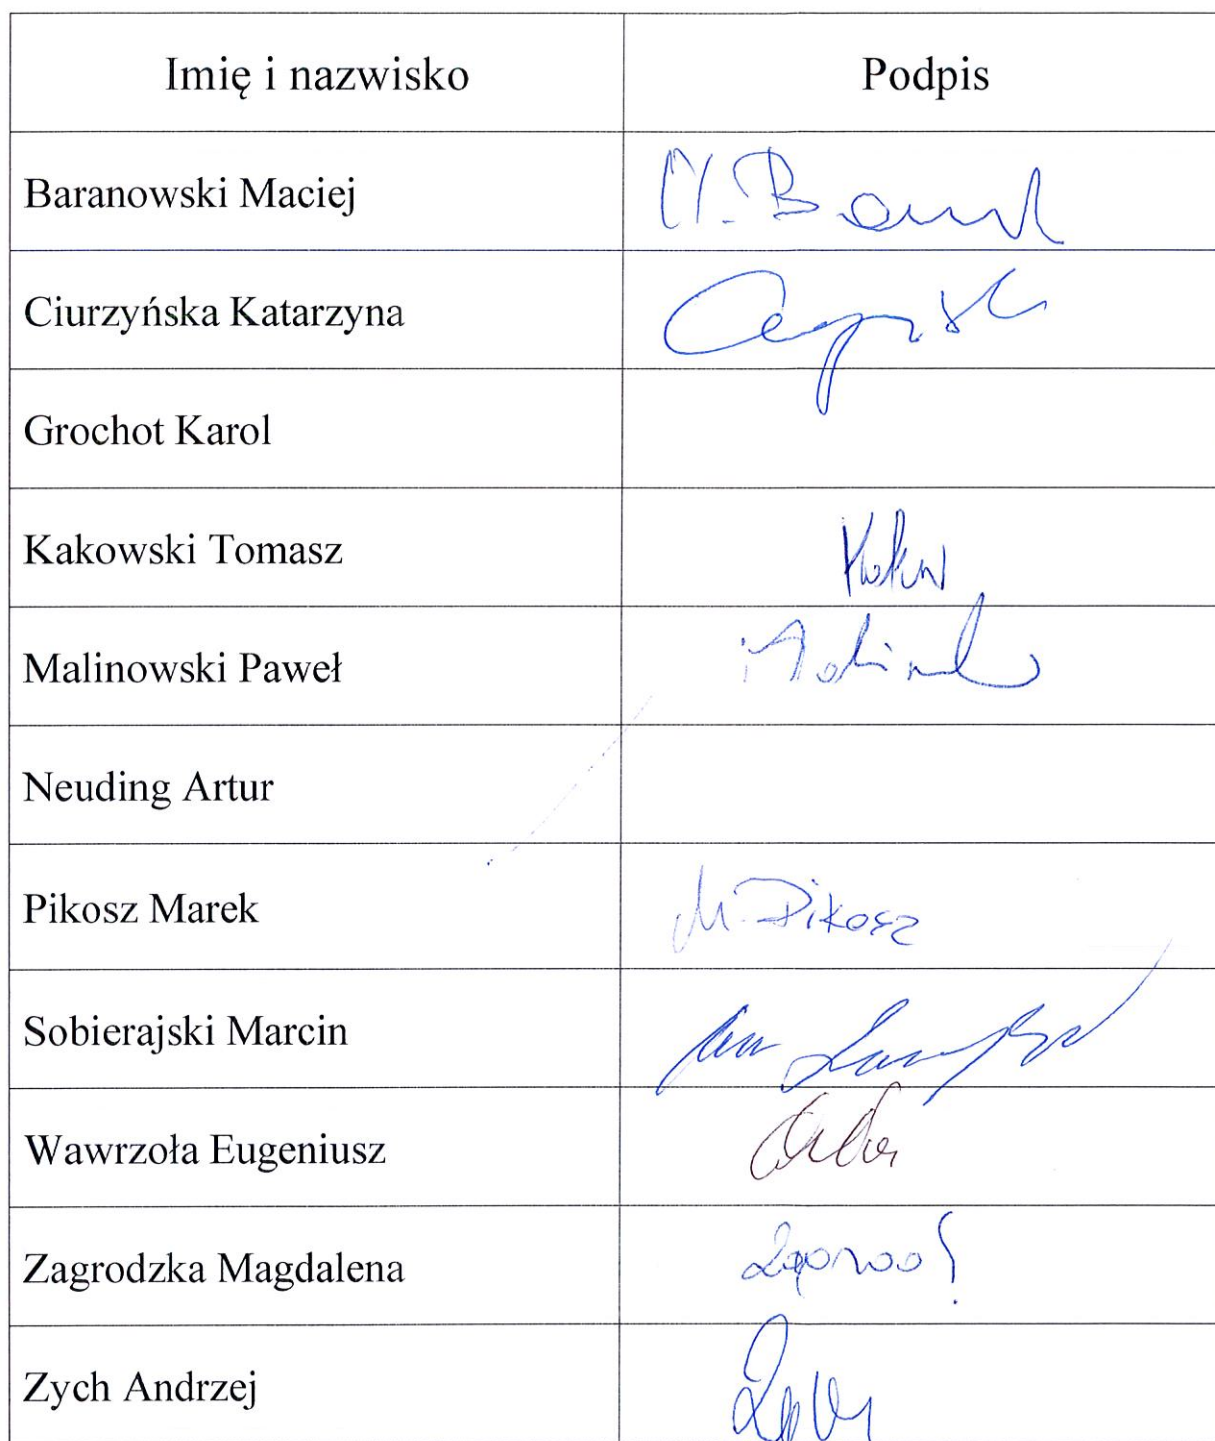 Imię i nazwisko Podpis
Baranowski Maciej
Ciurzyńska Katarzyna
Grochot Karol
Kakowski Tomasz
Malinowski Paweł
Neuding Artur
Pikosz Marek M. Pikosz
Sobierajski Marcin
Wawrzoła Eugeniusz
Zagrodzka Magdalena
Zych Andrzej